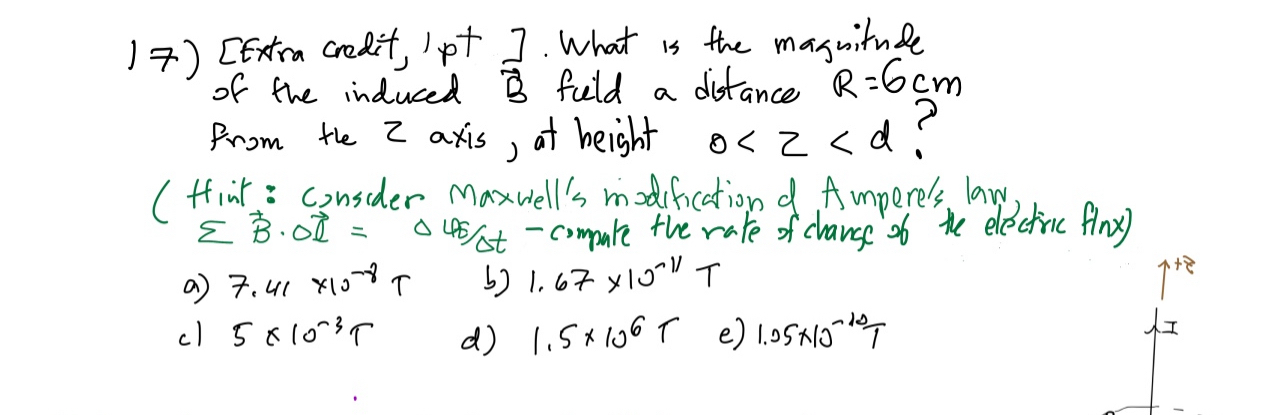 17) [Extra credit, 1pt ]. What is the magnitude
of the induced B⃗ field a distance R=6cm
from the Z axis, at height 0< Z < d ?
(Hint: consider Maxwell's modification of Ampere's law,
Σ B⃗·Δl⃗ = ΔΦE/Δt - compute the rate of change of the electric flux)
a) 7.41 ×10⁻⁸ T b) 1.67 ×10⁻¹¹ T
+z
c) 5 ×10⁻³ T d) 1.5×10⁶ T e) 1.05×10⁻¹⁰ T
I